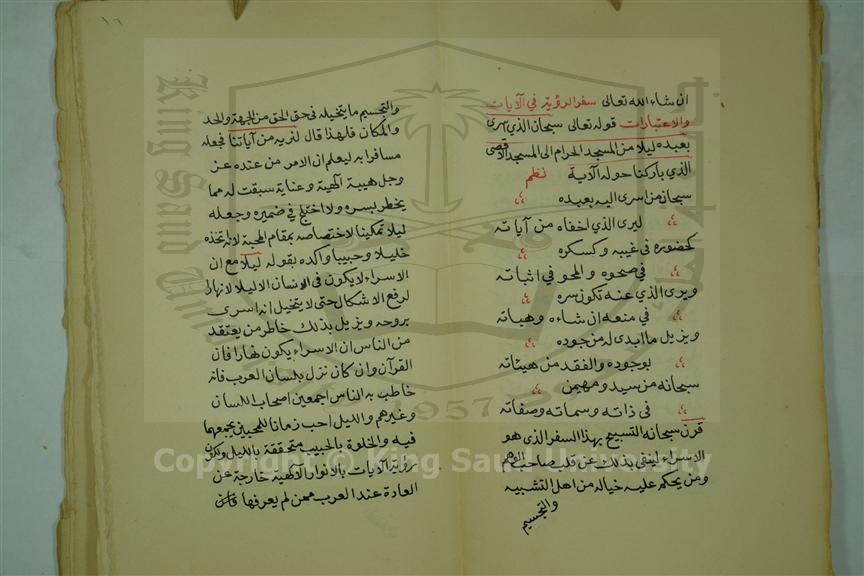 ١٦
ان شاء الله تعالى سفر الرؤية في الآيات
والاعتبارات قوله تعالى سبحان الذي اسرى
بعبده ليلا من المسجد الحرام الى المسجد الاقصى
الذي باركنا حوله الآية نظم
سبحان من اسرى اليه بعبده
ليرى الذي اخفاه من آياته
كحضوره في غيبه وكسكره
في صحوه والمحو في اثباته
ويرى الذي عنه تكون سره
في منعه ان شاءه وهباته
ويزيل ما ابدى له من جوده
بوجوده والفقد من هيئاته
سبحانه من سيد ومهيمن
في ذاته وسماته وصفاته
قرن سبحانه التسبيح بهذا السفر الذي هو
الاسراء لينفي بذلك عن قلب صاحب الوهم
ومن يحكم عليه خياله من اهل التشبيه
والتجسيم
والتجسيم ما يتخيله في حق الحق من الجهة والحد
والمكان فلهذا قال لنريه من آياتنا فجعله
مسافرا به ليعلم ان الامر من عنده عز
وجل هيبة آلهية وعناية سبقت له مما
يخطر بسره ولا اختلج في ضميره وجعله
ليلا تمكينا لاختصاصه بمقام المحبة لانه اتخذه
خليلا وحبيبا واكده بقوله ليلا مع ان
الاسراء لا يكون في الانسان الا ليلا لا نهارا
لرفع الاشكال حتى لا يتخيل انه اسرى
بروحه ويزيل بذلك خاطر من يعتقد
من الناس ان الاسراء يكون نهارا فان
القرآن وان كان نزل بلسان العرب فانه
خاطب به الناس اجمعين اصحاب اللسان
وغيرهم والليل احب زمانا للمحبين لجمعهما
فيه والخلوة بالحبيب متحققة بالليل ولتكون
رؤية الآيات بالانوار الآلهية خارجة عن
العادة عند العرب ممن لم يعرفها فان
King Saud University
1957
Copyright © King Saud University